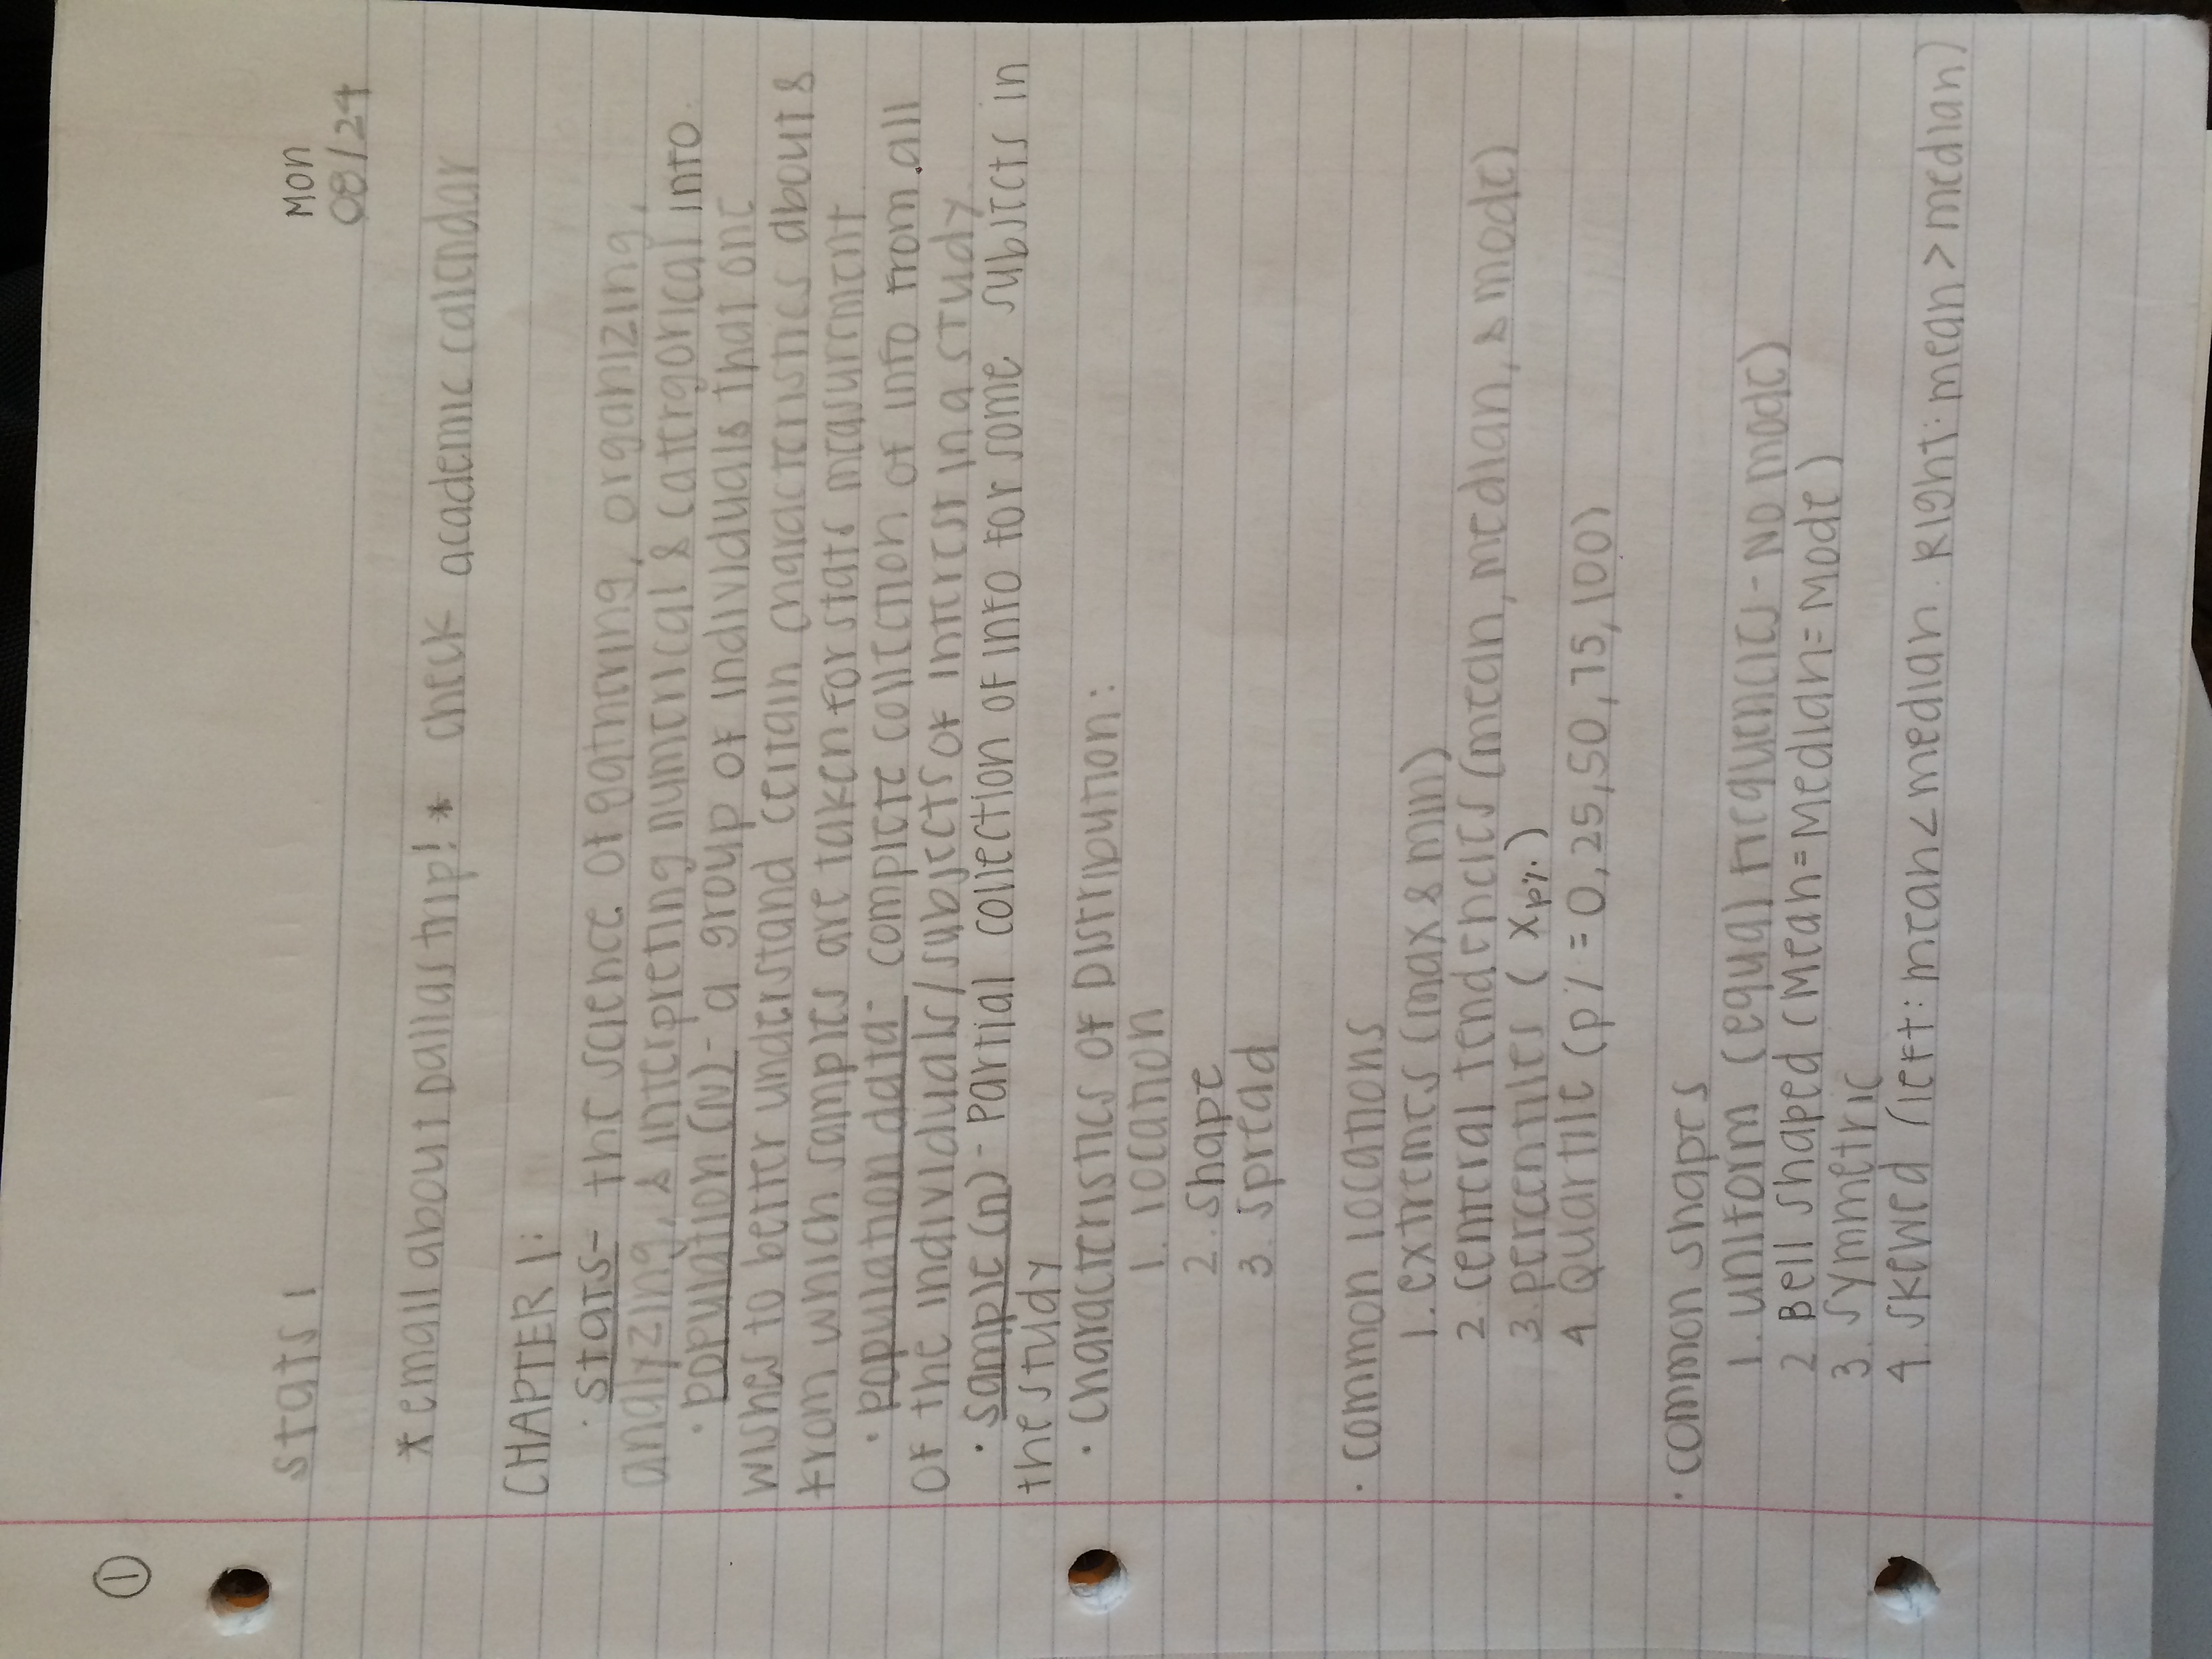 ①
Mon
Stats 1 08/24
* email about Dallas trip! * check academic calendar
CHAPTER 1:
· Stats- the science of gathering, organizing,
analyzing, & interpreting numerical & categorical info.
· Population (N) - a group of individuals that one
wishes to better understand certain characteristics about &
from which samples are taken for stats measurement
· Population data- complete collection of info from all
of the individuals/subjects of interest in a study
· Sample (n) - Partial collection of info for some subjects in
the study
· Characteristics of Distribution:
1. location
2. Shape
3. Spread
· Common locations
1. extremes (max & min)
2. central tendencies (mean, median, & mode)
3. percentiles (Xp%.)
4. Quartile (p% = 0, 25, 50, 75, 100)
· Common shapes
1. uniform (equal frequencies - No mode)
2 Bell shaped (Mean=Median=Mode)
3. Symmetric
4. Skewed (left: mean<median. Right: mean>median)